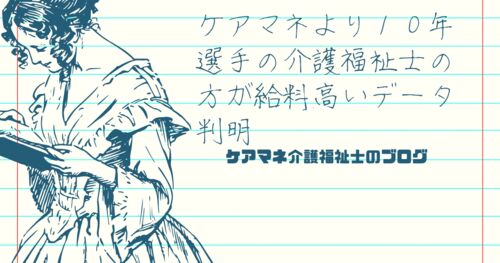 ケアマネより10年
選手の介護福祉士の
方が給料高いデータ
判明
ケアマネ介護福祉士のブログ